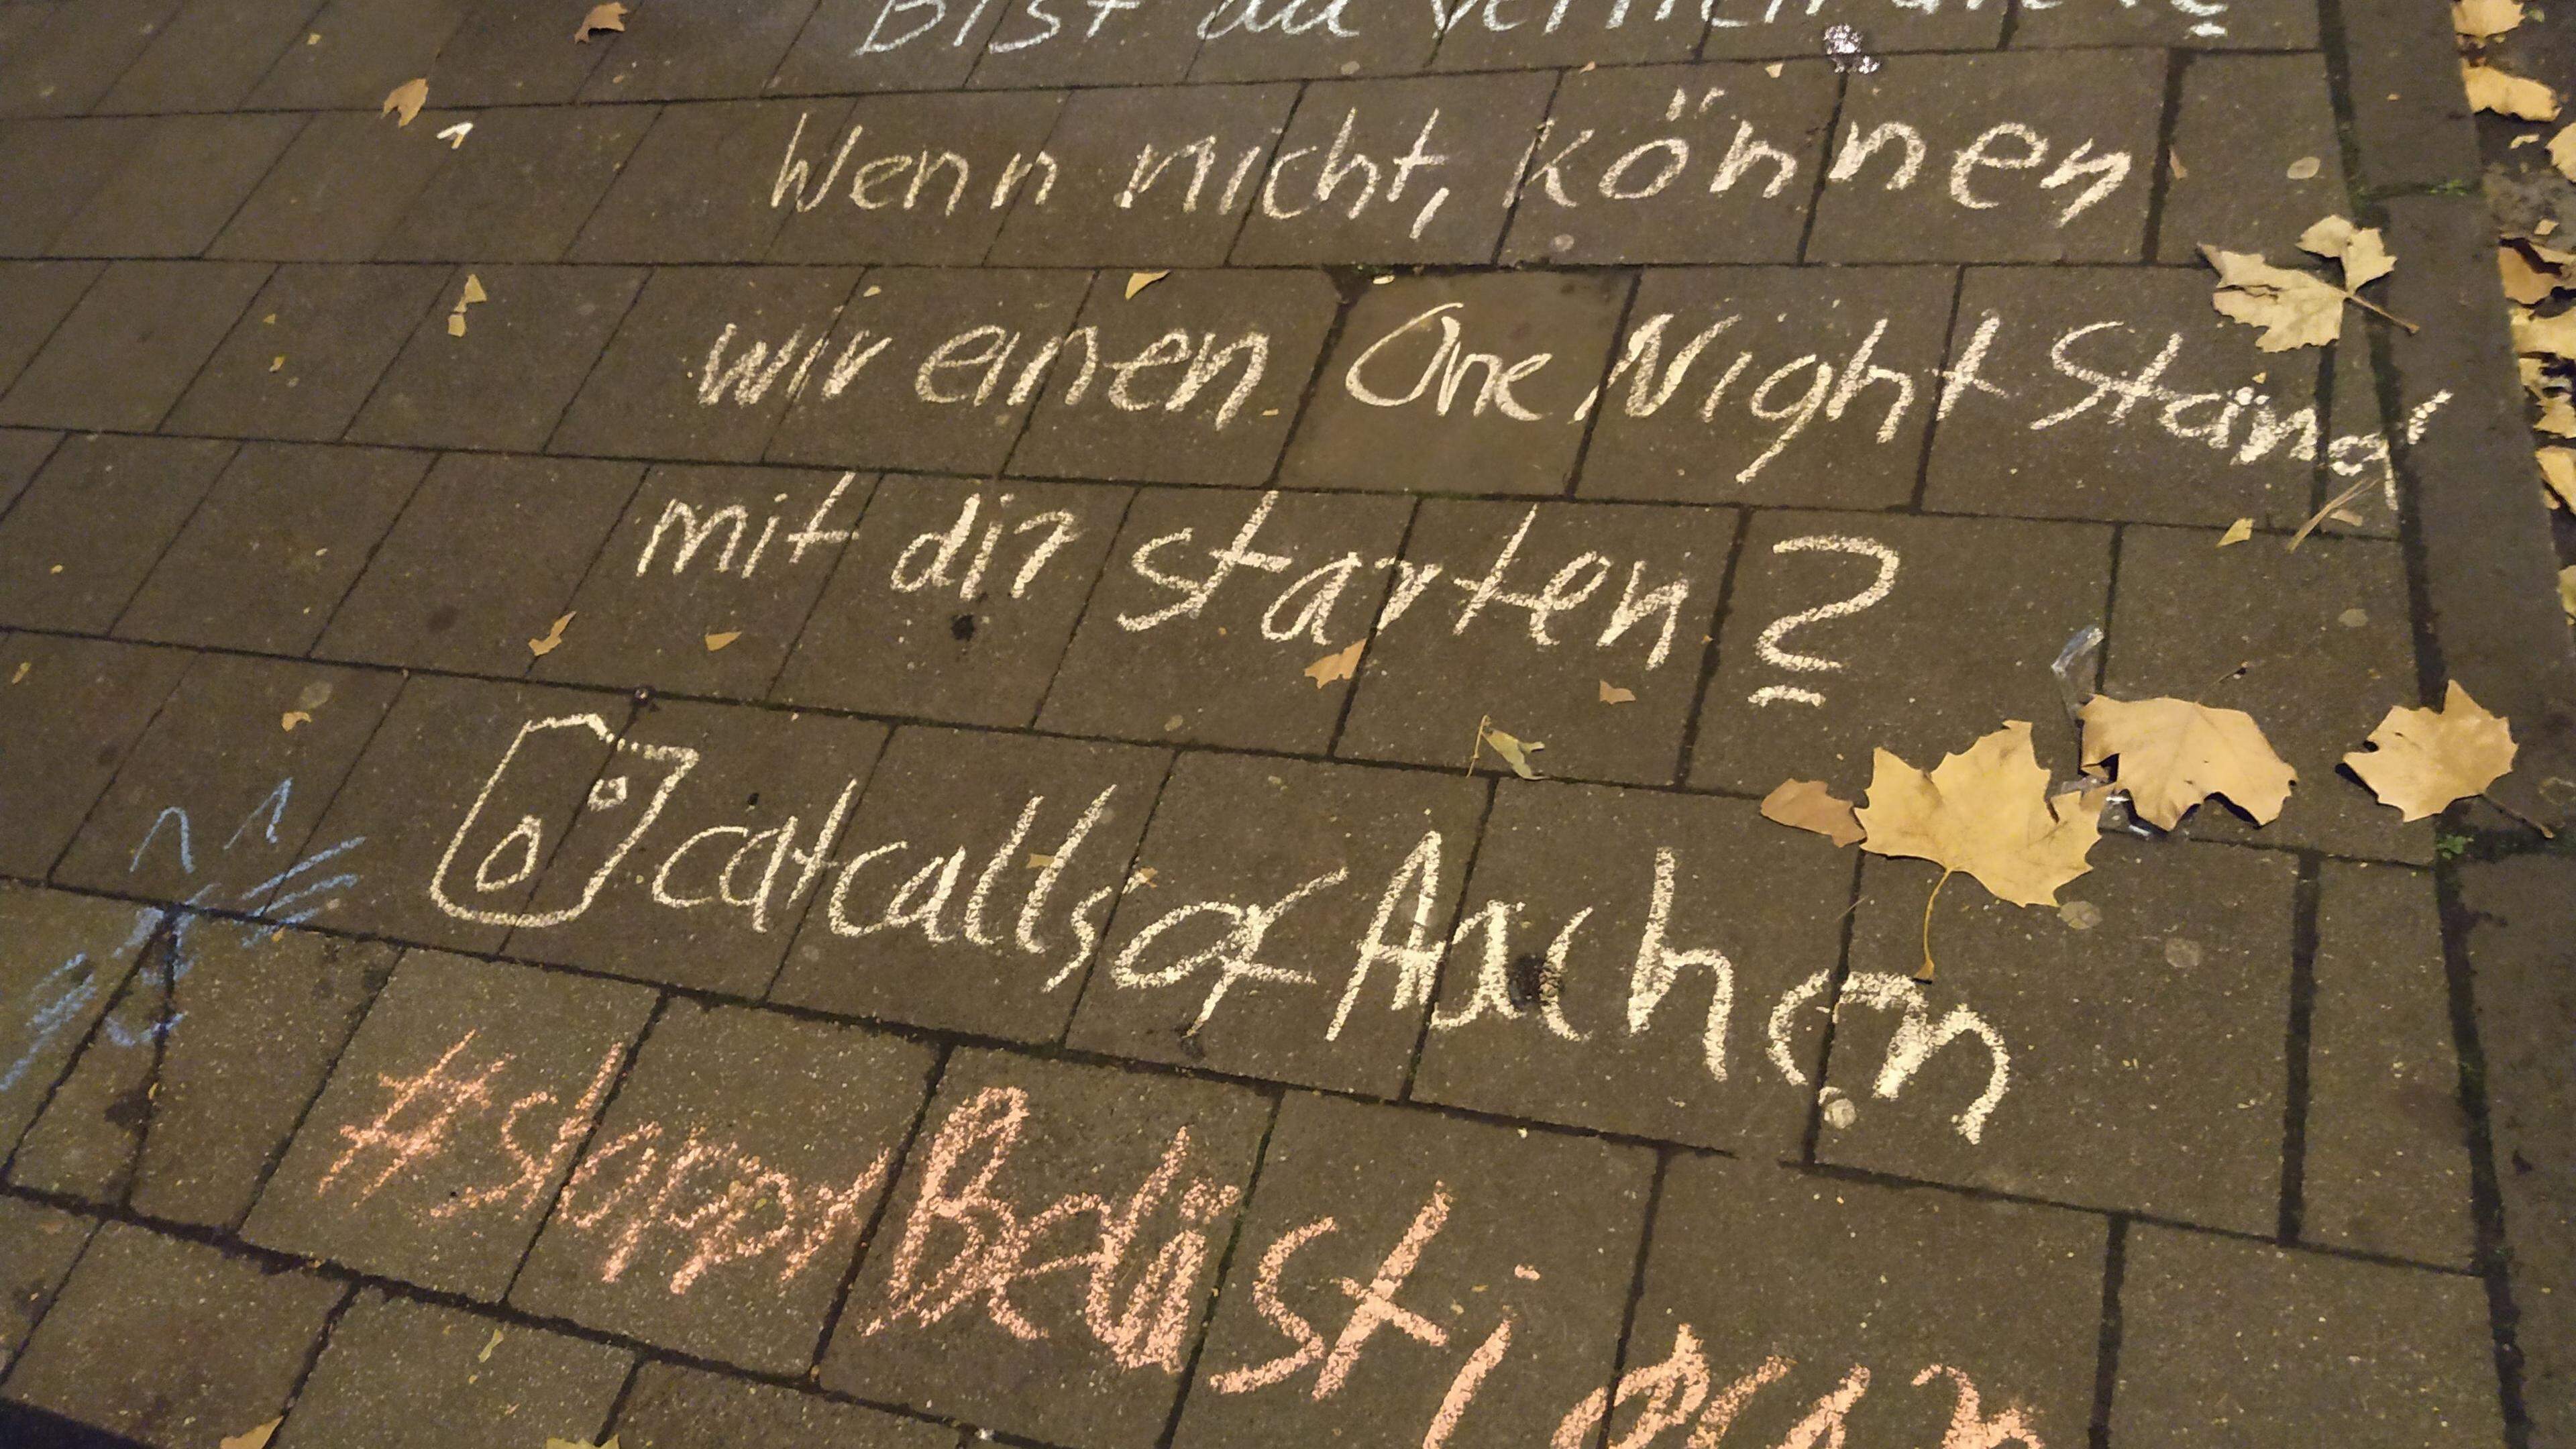 Bist du verheiratet?
Wenn nicht, können
wir einen One Night Stand
mit dir starten?
catcallsofAachen
#stoppt Belästigung